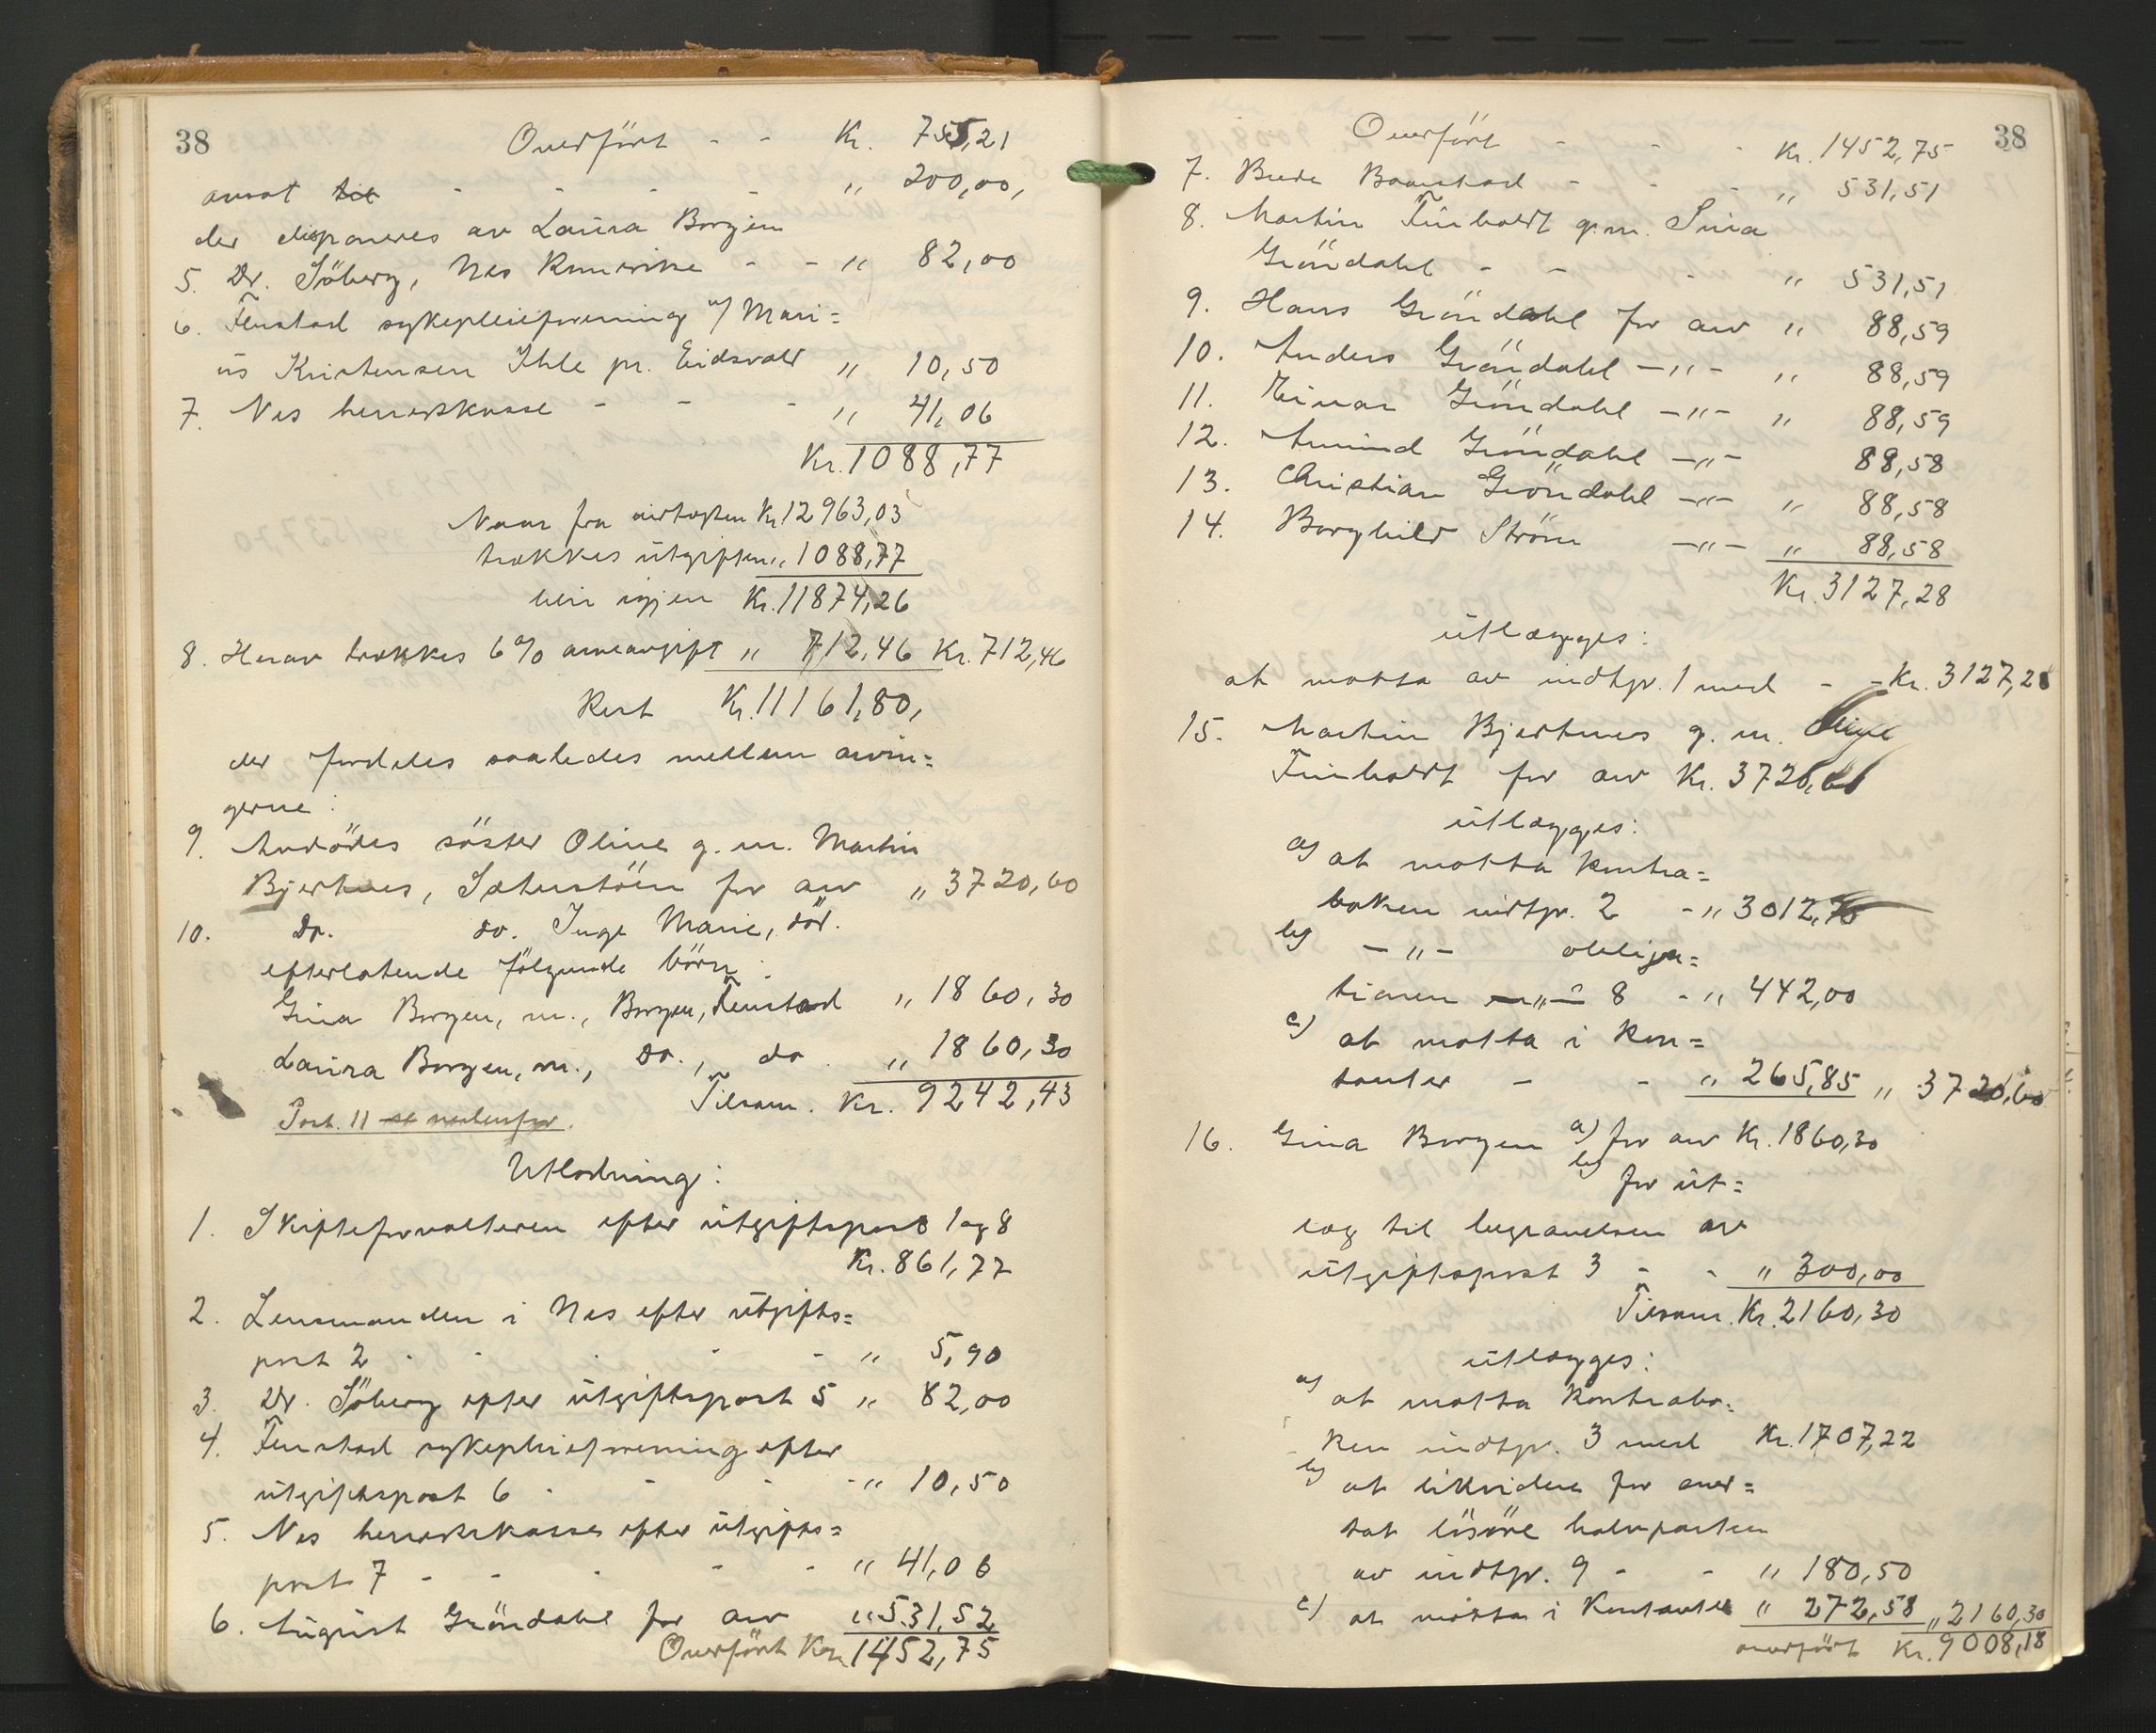 38
Overført - - Kr. 755,21
ansat til - - - - " 200,00,
der disponeres av Laura Borgen
5. Dr. Söberg, Nes Romerike - - " 82,00
6. Fenstad sykepleieforening v/ Mari=
us Kristensen Ihle pr. Eidsvold " 10,50
7. Nes herredskasse - - - " 41,06
Kr. 1088,77
Naar fra indtægten Kr. 12963,03
trækkes utgiften " 1088,77
blir igjen Kr. 11874,26
8. Herav trækkes 6% arveavgift " 712,46 Kr. 712,46
Rest Kr. 11161,80,
der fordeles saaledes mellem arvin=
gerne:
9. Avdödes söster Oline g. m. Martin
Bjertnes, Sæterstöen for arv " 3720,60
10. Do. do. Inge Marie, död.
efterlatende fölgende börn:
Gina Borgen, m., Borgen, Fenstad " 1860,30
Laura Borgen, m., do., do. " 1860,30
Tilsam. Kr. 9242,43
Post. 11 se nedenfor.
Utlodning:
1. Skifteforvalteren efter utgiftspost 1 og 8
Kr. 861,77
2. Lensmanden i Nes efter utgifts=
post 2 - - - - " 5,90
3. Dr. Söberg efter utgiftspost 5 " 82,00
4. Fenstad sykepleieforening efter
utgiftspost 6 - - - " 10,50
5. Nes herredskasse efter utgifts=
post 7 - - - - " 41,06
6. August Gröndahl for arv " 531,52
Overfört Kr. 1452,75
38
Overfört - - - Kr. 1452,75
7. Brede Baarstad - - - " 531,51
8. Martin Finholdt g.m. Sina
Gröndahl - - - " 531,51
9. Hans Gröndahl for arv " 88,59
10. Anders Gröndahl -"- " 88,59
11. Einar Gröndahl -"- " 88,59
12. Amund Gröndahl -"- 88,58
13. Christian Gröndahl -"- " 88,58
14. Borghild Ström -"- " 88,58
Kr. 3127,28
utlægges:
at motta av indtp. 1 med - - Kr. 3127,28
15. Martin Bjertnes g. m. Oline
Finholdt for arv Kr. 3720,60
utlægges:
a) at motta kontra=
boken indtp. 2 - " 3012,75
b) -"- obliga=
tionen -"- 8 - " 442,00
c) at motta i kon=
tanter - - " 265,85 " 3720,60
16. Gina Borgen a) for arv Kr. 1860,30
b) for ut=
læg til begravelsen av
utgiftspost 3 - - " 300,00
Tilsam. Kr. 2160,30
utlægges:
a) at motta kontrabo=
ken indtp. 3 med Kr. 1707,22
b) at likvidere for over=
tat lösöre halvparten
av indtp. 9 - - " 180,50
c) at motta i kontanter " 272,58 " 2160,30
overfört Kr. 9008,18